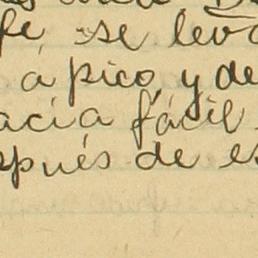 fé, se leva
a pico, y de
acía fácil
spués de es